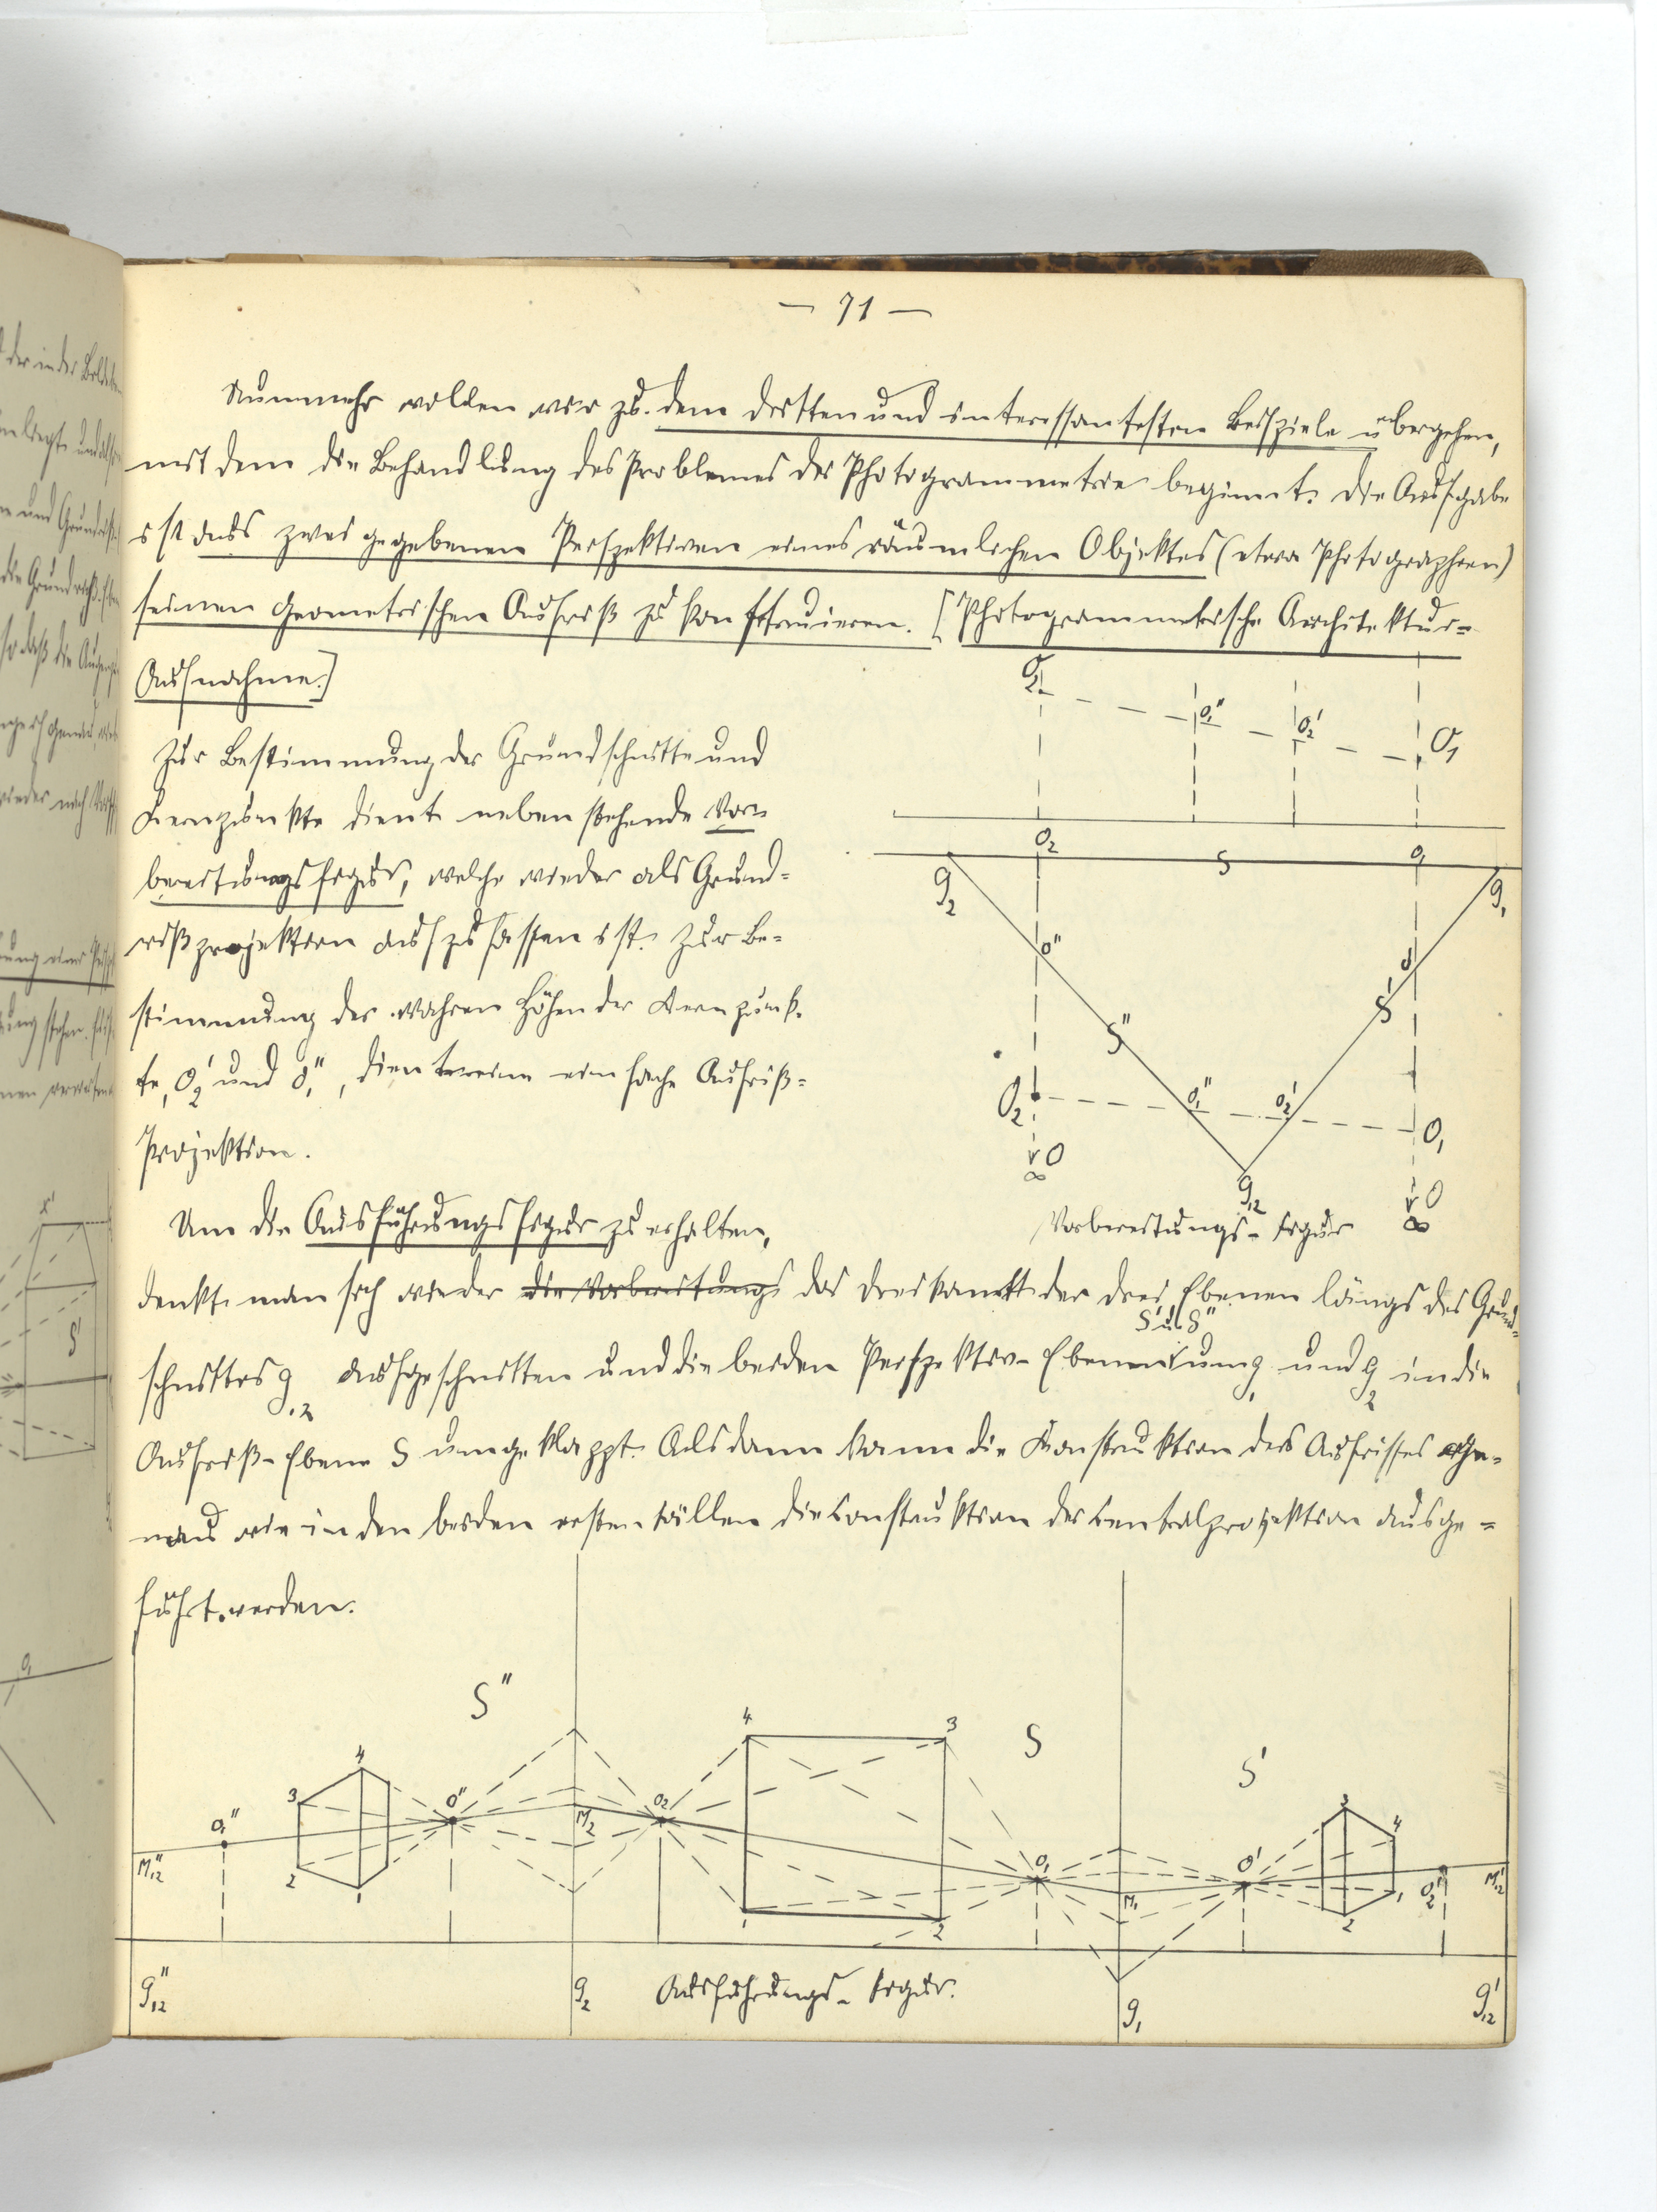 — 71 —
Nunmehr wollen wir zu dem dritten und interessantesten Beispiele übergehen,
mit dem die Behandlung des Problemes der Photogrammetrie beginnt. Die Aufgabe
ist aus zwei gegebenen Perspektiven eines räumlichen Objektes (etwa Photographien)
seinen geometrischen Aufriß zu konstruieren. [Photogrammetrische Architektur=
Aufnahme.]
Zur Bestimmung der Grundschnitte und
Kernpunkte dient nebenstehende Vor=
bereitungsfigur, welche wieder als Grund=
rißprojektion aufzufassen ist. Zur Be=
stimmung der wahren Höhen der Kernpunk=
te, O₂' und O₁'', dient eine einfache Aufriß=
Projektion.
Um die Ausführungsfigur zu erhalten,
denkt man sich wieder die Vorbereitungs das Dreikant der drei Ebenen längs des Grund=
S' u. S''
schnittes g₁₂ aufgeschnitten und die beiden Perspektiv-Ebenen um g₁ und g₂ in die
Aufriß-Ebene S umgeklappt. Alsdann kann die Konstruktion des Aufrisses ge=
nau wie in den beiden ersten Fällen die Konstruktion der Centralprojektion ausge=
führt werden.
O₂ O₁'' O₂' O₁
O₂ S O₁
g₂ g₁
O'' O'
S'' S'
O₂ O₁'' O₂' O₁
O ∞ g₁₂ O ∞
Vorbereitungs-Figur
S'' S S'
4 3 2 1 O₁'' O'' M₂ O₂ M₁₂''
4 3 1 2
O₁ M₁ O' 3 4 1 2 O₂' M₁₂'
g₁₂'' g₂ Ausführungs-Figur. g₁ g₁₂'